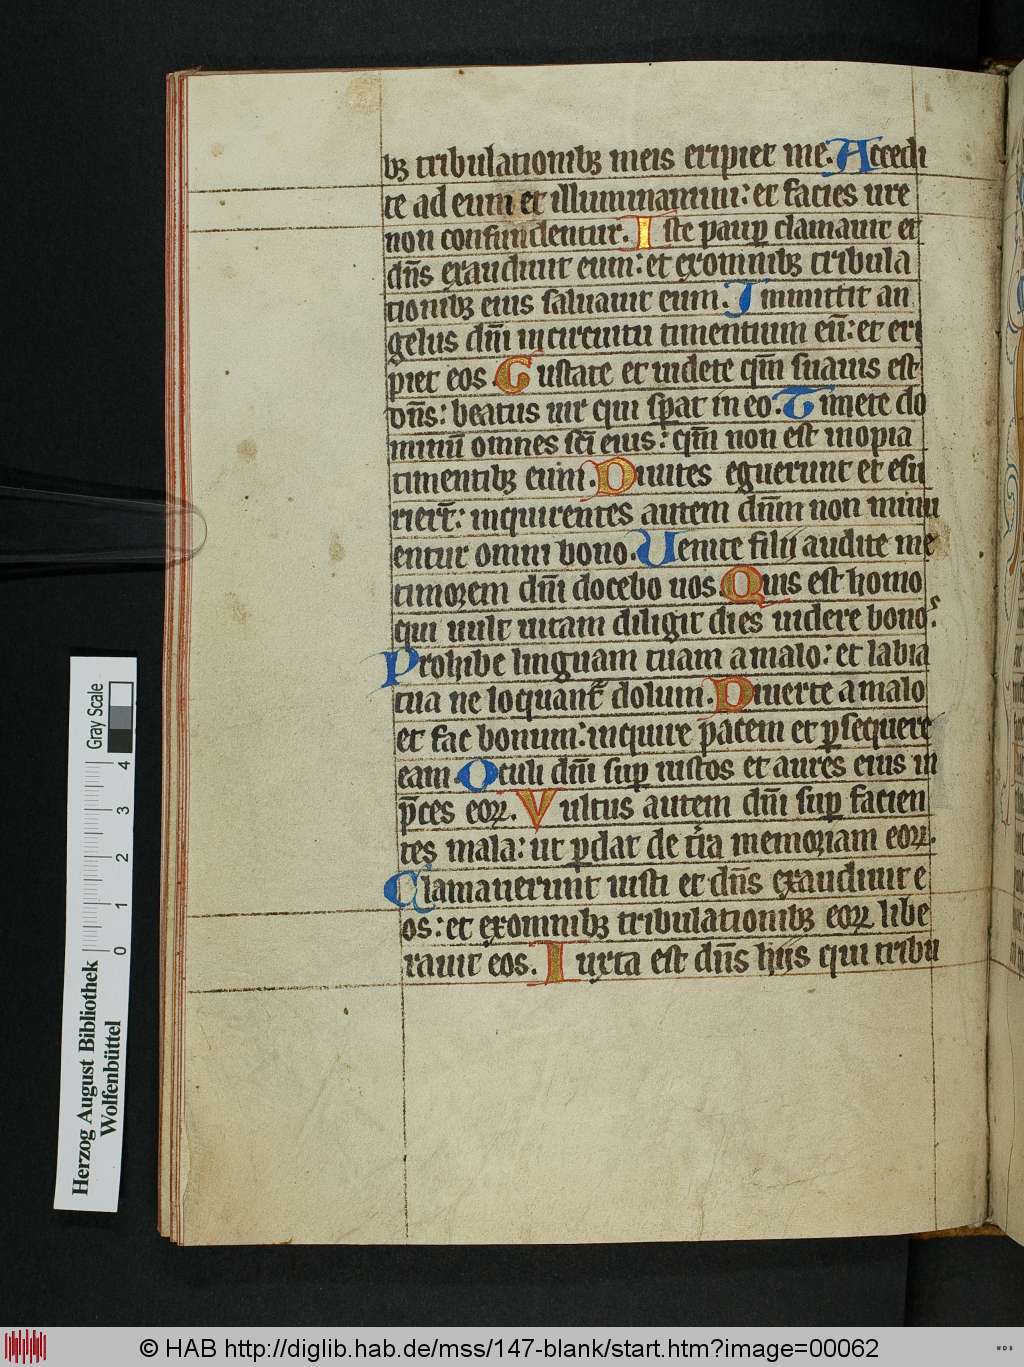 bꝫ tribulationibꝫ meis eripiet me. Accedi
te ad eum et illuminamini: et facies ure
non confundentur. Iste paup̲ clamauit et
dn̄s exaudiuit eum: et exomnibꝫ tribula
tionibꝫ eius saluauit eum. Immittit an
gelus dn̄i incircuitu timentium eū: et eri
piet eos. Gustate et uidete qm̄ suauis est
dn̄s: beatus uir qui sp̲at in eo. Timete do
minū omnes sc̄i eius: qm̄ non est inopia
timentibꝫ eum. Diuites eguerunt et esu
rier̄t: inquirentes autem dn̄m non minu
entur omni bono. Uenite filii audite me
timorem dn̄i docebo uos. Quis est homo
qui uult uitam diligit dies uidere bonos.
Prohibe linguam tuam amalo: et labia
tua ne loquant᷑ dolum. Diuerte amalo
et fac bonum: inquire pacem et p̲sequere
eam. Oculi dn̄i sup̲ iustos et aures eius in
p̄ces eoꝝ. Vultus autem dn̄i sup̲ facien
tes mala: ut p̲dat de t̄ra memoriam eoꝝ.
Clamauerunt iusti et dn̄s exaudiuit e
os: et exomnibꝫ tribulationibꝫ eoꝝ libe
rauit eos. Iuxta est dn̄s hiis qui tribu
Gray Scale
4
3
2
1
0
Herzog August Bibliothek
Wolfenbüttel
© HAB http://diglib.hab.de/mss/147-blank/start.htm?image=00062